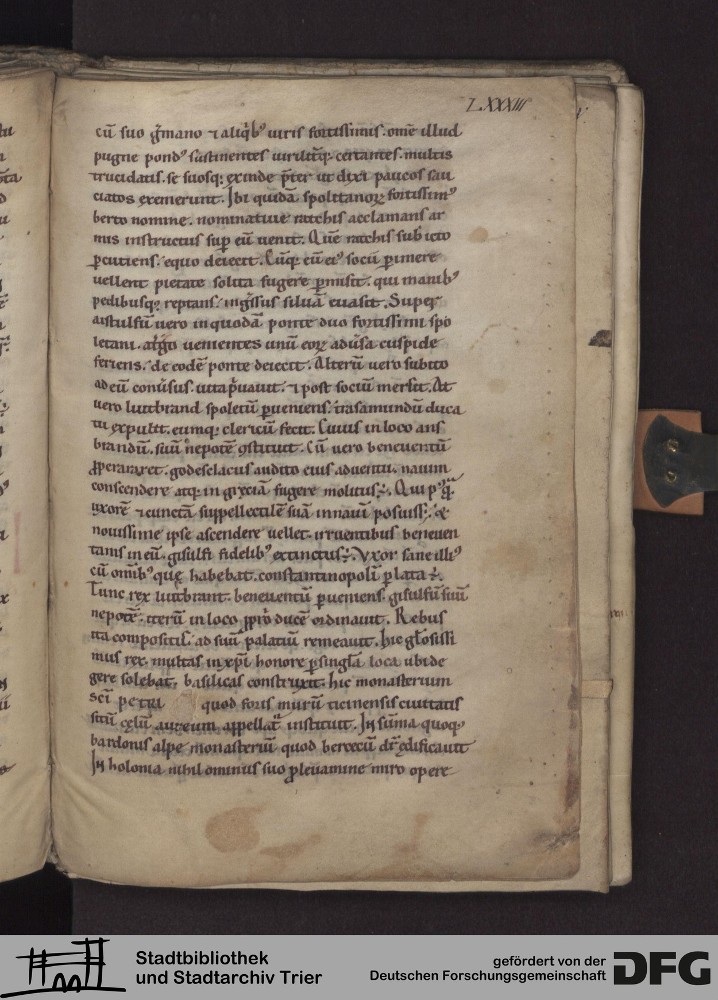 LXXXIII
cū suo g̃mano ⁊ aliq̇b⁹ uiris fortissimis. om̄e illud
pugne pond⁹ sustinentes uirilit̃q; certantes. multis
trucidatis. se suosq; exinde p̃ter ut dixi paucos sau
ciatos exemerunt. Ibi quidā spolitanoꝝ fortissim⁹
berto nomine. nominatiue ratchis acclamans ar
mis instructus sup̄ eū uenit. Quē ratchis subicto
ꝑcutiens. equo deiecit. Cūq; eū ei⁹ socii ꝑimere
uellent pietate solita fugere ꝑmisit. qui manib⁹
pedibusq; reptans. ing̃ssus siluā euasit. Super
aistulfū uero in quodā ponte duo fortissimi spo
letani. at̃go uenientes unū eoꝝ aduersa cuspide
feriens. de eodē ponte deiecit. Alterū uero subito
ad eū conūsus. uita p̃uauit. ⁊ post sociū mersit. At
uero liutbrand spoletū ꝑueniens. trasamundū duca
tu expulit. eumq; clericū fecit. Cuius in loco ans
brandū. suū nepotē ꝯstituit. Cū uero beneuentū
ꝓperararet. godesclacus audito eius aduentu. nauim
conscendere atq; in greciā fugere molitus ÷. Qui p⁹q̃
uxorē ⁊ cunctā suppellectilē suā in nauī posuiss;. &
nouissime ipse ascendere uellet. irruentibus beneuen
tanis in eū. gisulfi fidelib⁹ extinctus ÷. Vxor sane illi⁹
cū omīb⁹ que habebat. constantinopolī ꝑlata ÷.
Tunc rex liutbrant. beneuentū ꝑueniens. gisulfū suū
nepotē. iterū in loco ꝓprio ducē ordinauit. Rebus
ita compositis. ad suū palatiū remeauit. hic gl̄osissi
mus rex. multas in xp̄i honore ꝑ singl̄a loca ubi de
gere solebat. basilicas construxit. hic monasterium
sc̄i petri quod foris murū ticinensis ciuitatis
sitū celū aureum appellat̃ instituit. In sūma quoq;
bardonis alpe monasteriū quod bercecū dr̄ edificauit
In holonia nihilominus suo ꝓleuamine miro opere
Stadtbibliothek
und Stadtarchiv Trier
gefördert von der
Deutschen Forschungsgemeinschaft
DFG